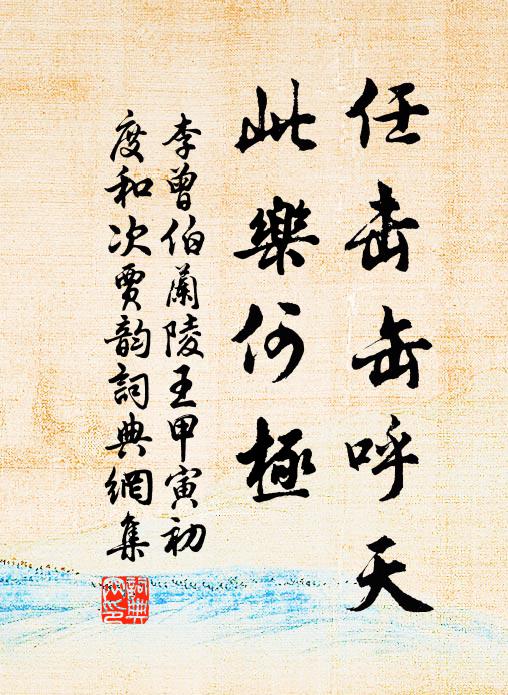 任击缶呼天
此樂何極
李曾伯蘭陵王甲寅初
度和次賈韵詞典網集